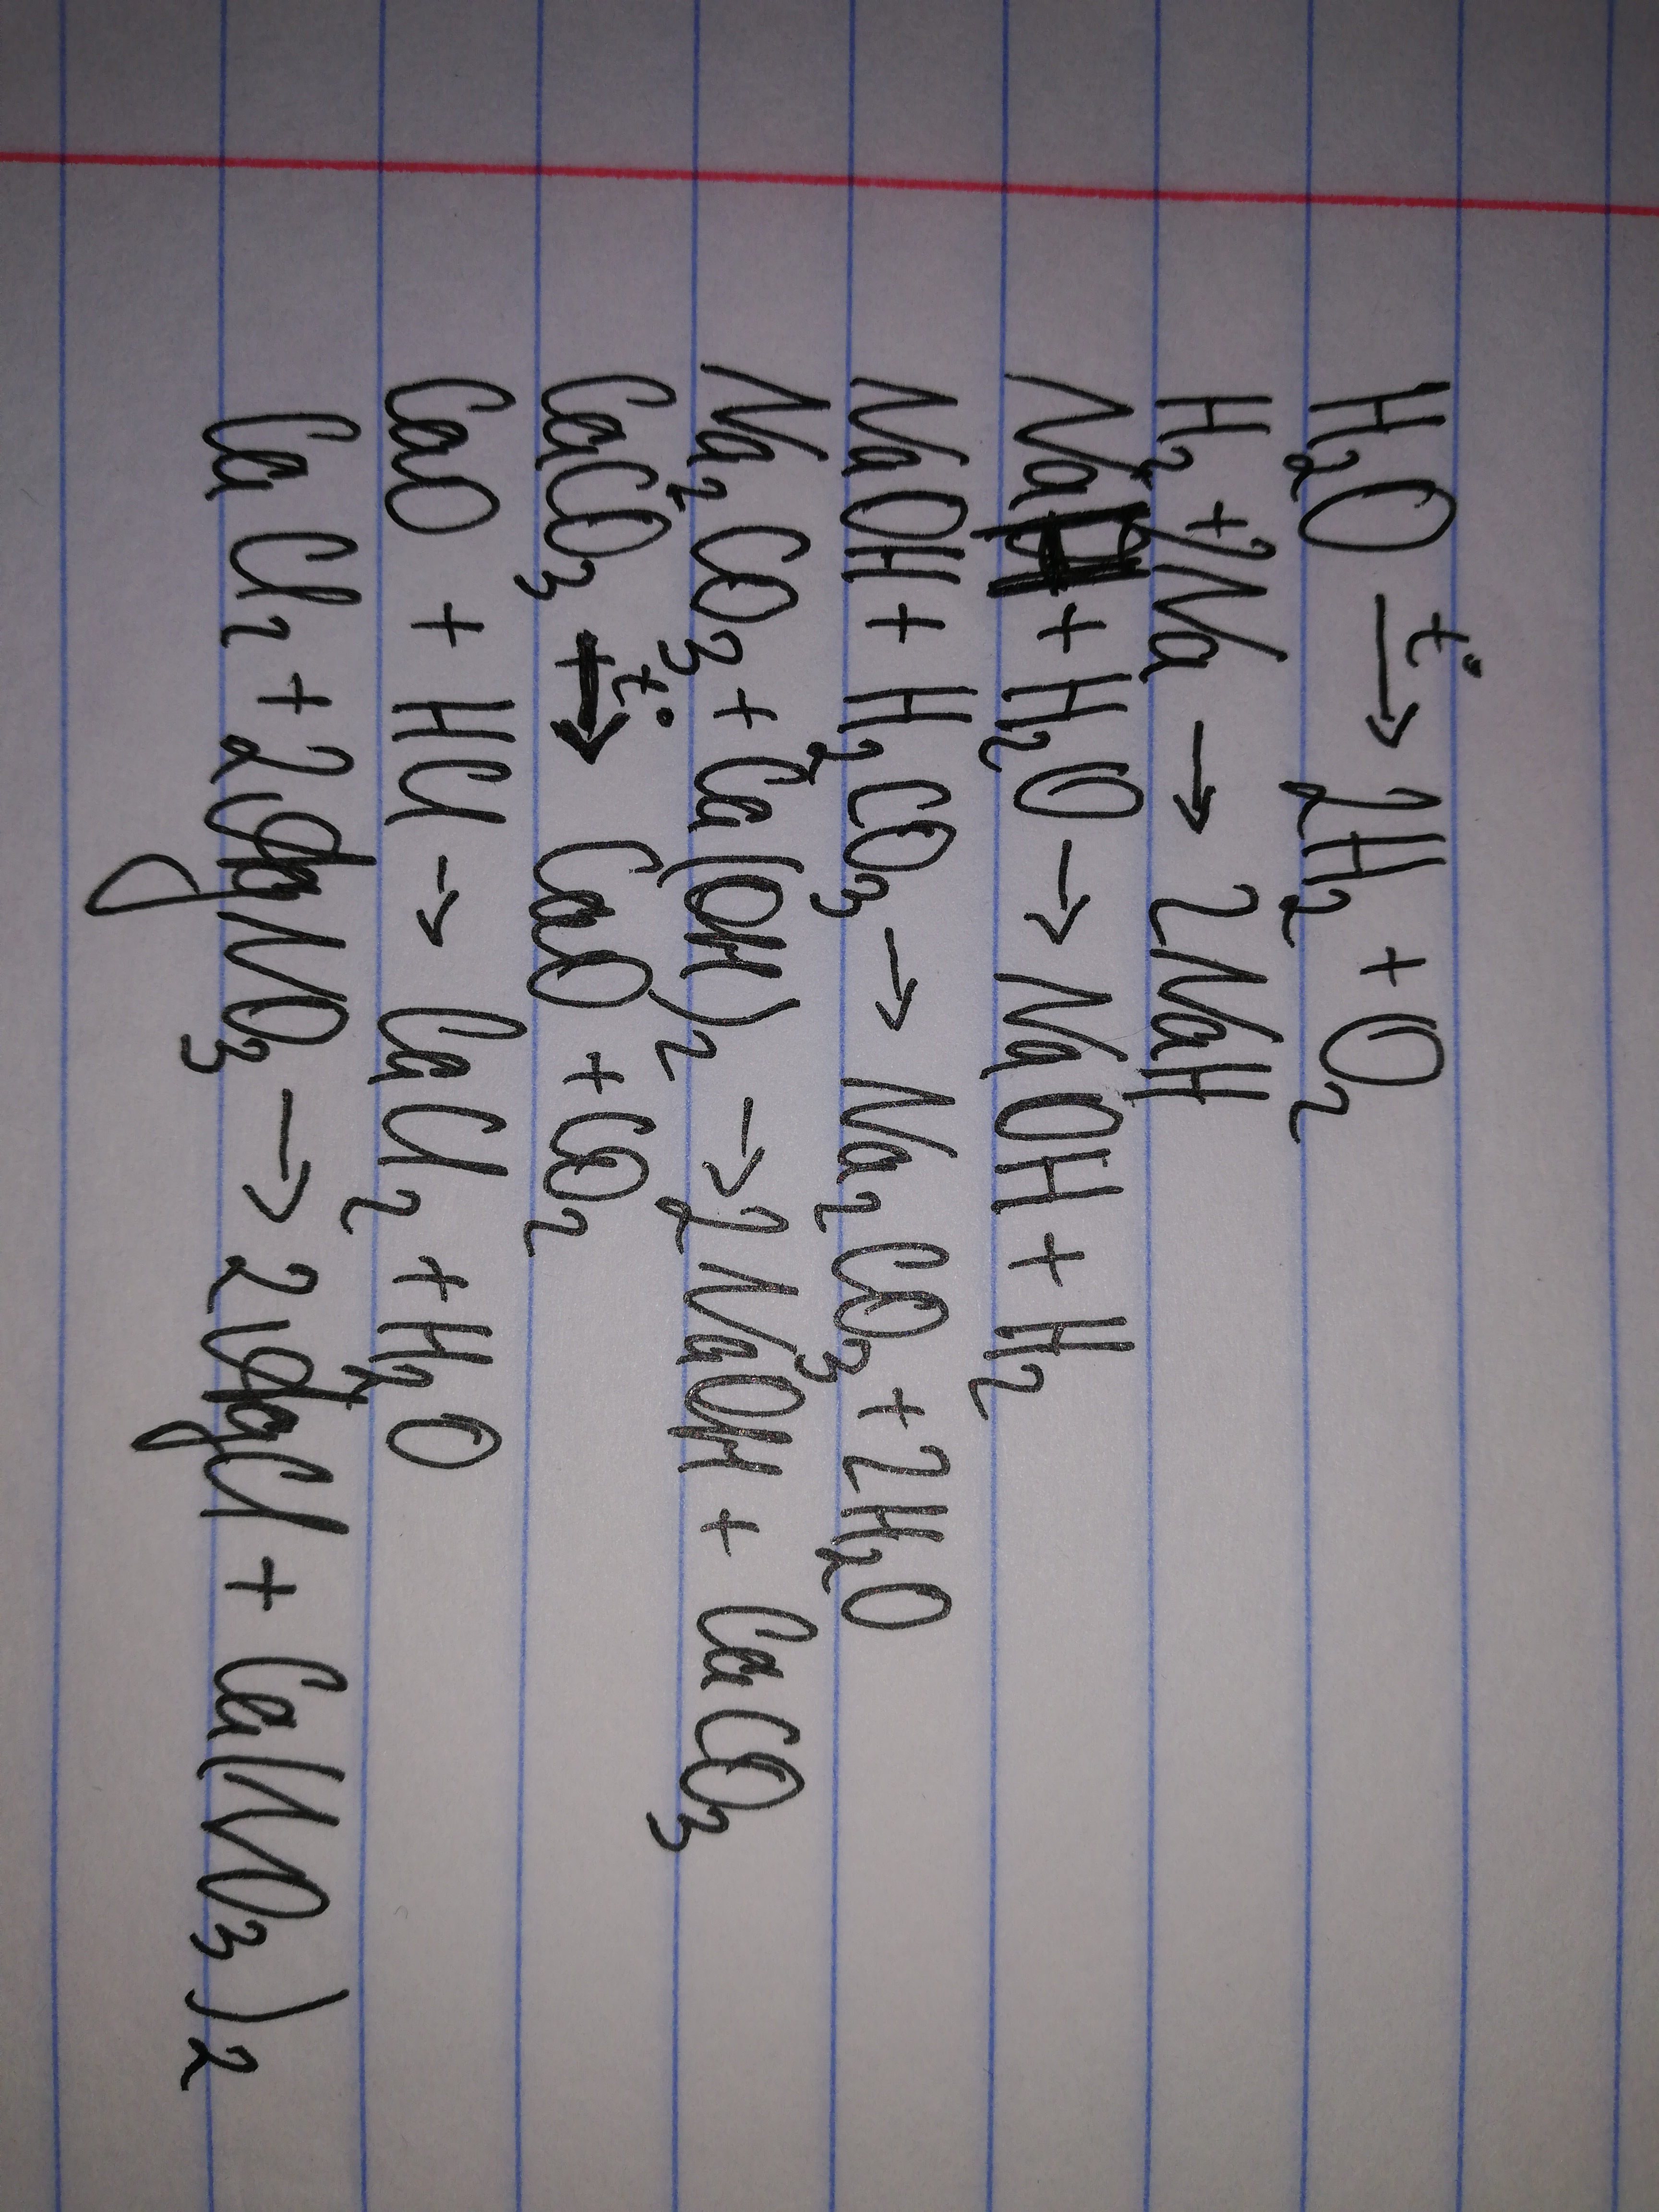 H₂O →t° 2H₂ + O₂
H₂ + 2Na → 2NaH
NaH + H₂O → NaOH + H₂
NaOH + H₂CO₃ → Na₂CO₃ + 2H₂O
Na₂CO₃ + Ca(OH)₂ → 2NaOH + CaCO₃
CaCO₃ →t° CaO + CO₂
CaO + HCl → CaCl₂ + H₂O
CaCl₂ + 2AgNO₃ → 2AgCl + Ca(NO₃)₂